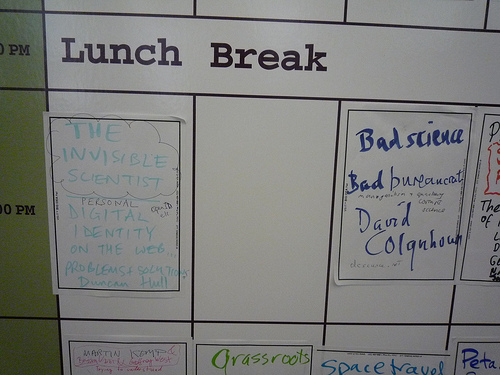 PM
Lunch Break
00 PM
THE
INVISIBLE
SCIENTIST
PERSONAL
DIGITAL
IDENTITY
ON THE WEB...
PROBLEMS + SOLUTIONS
Duncan Hull
Bad science
Bad bureaucrat
David
Colquhoun
dcscience.net
The
of
MARTIN
Grassroots
Space travel
Peta